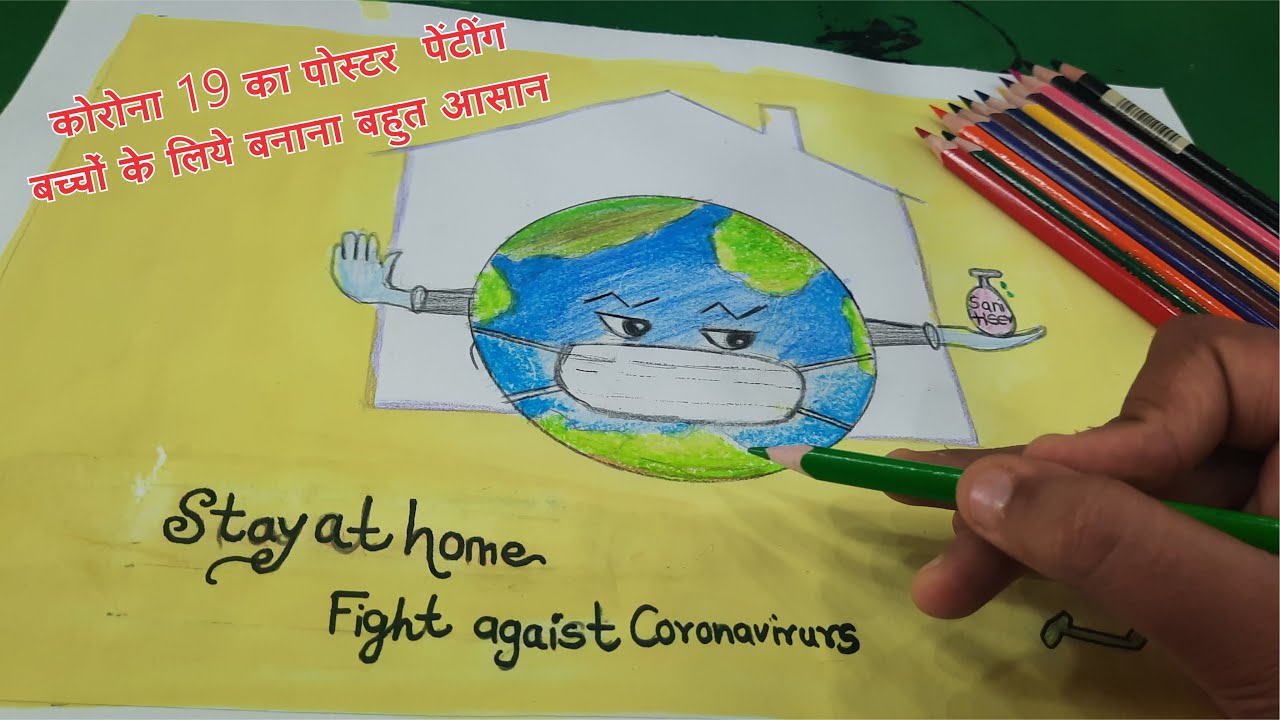 कोरोना 19 का पोस्टर पेंटींग
बच्चों के लिये बनाना बहुत आसान
Sani
tiser
Stay at home
Fight agaist Coronavirurs